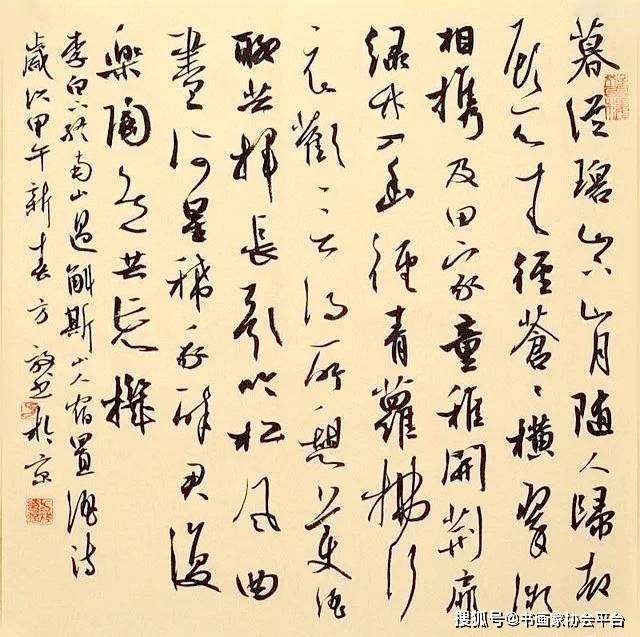 暮從碧山下山月隨人歸却
顧所來徑蒼蒼橫翠微
相攜及田家童稚開荊扉
綠竹入幽徑青蘿拂行
衣歡言得所憩美酒
聊共揮長歌吟松風曲
盡河星稀我醉君復
樂陶然共忘機
李白下終南山過斛斯山人宿置酒詩
歲次甲午新春方書於京
搜狐号@书画家协会平台